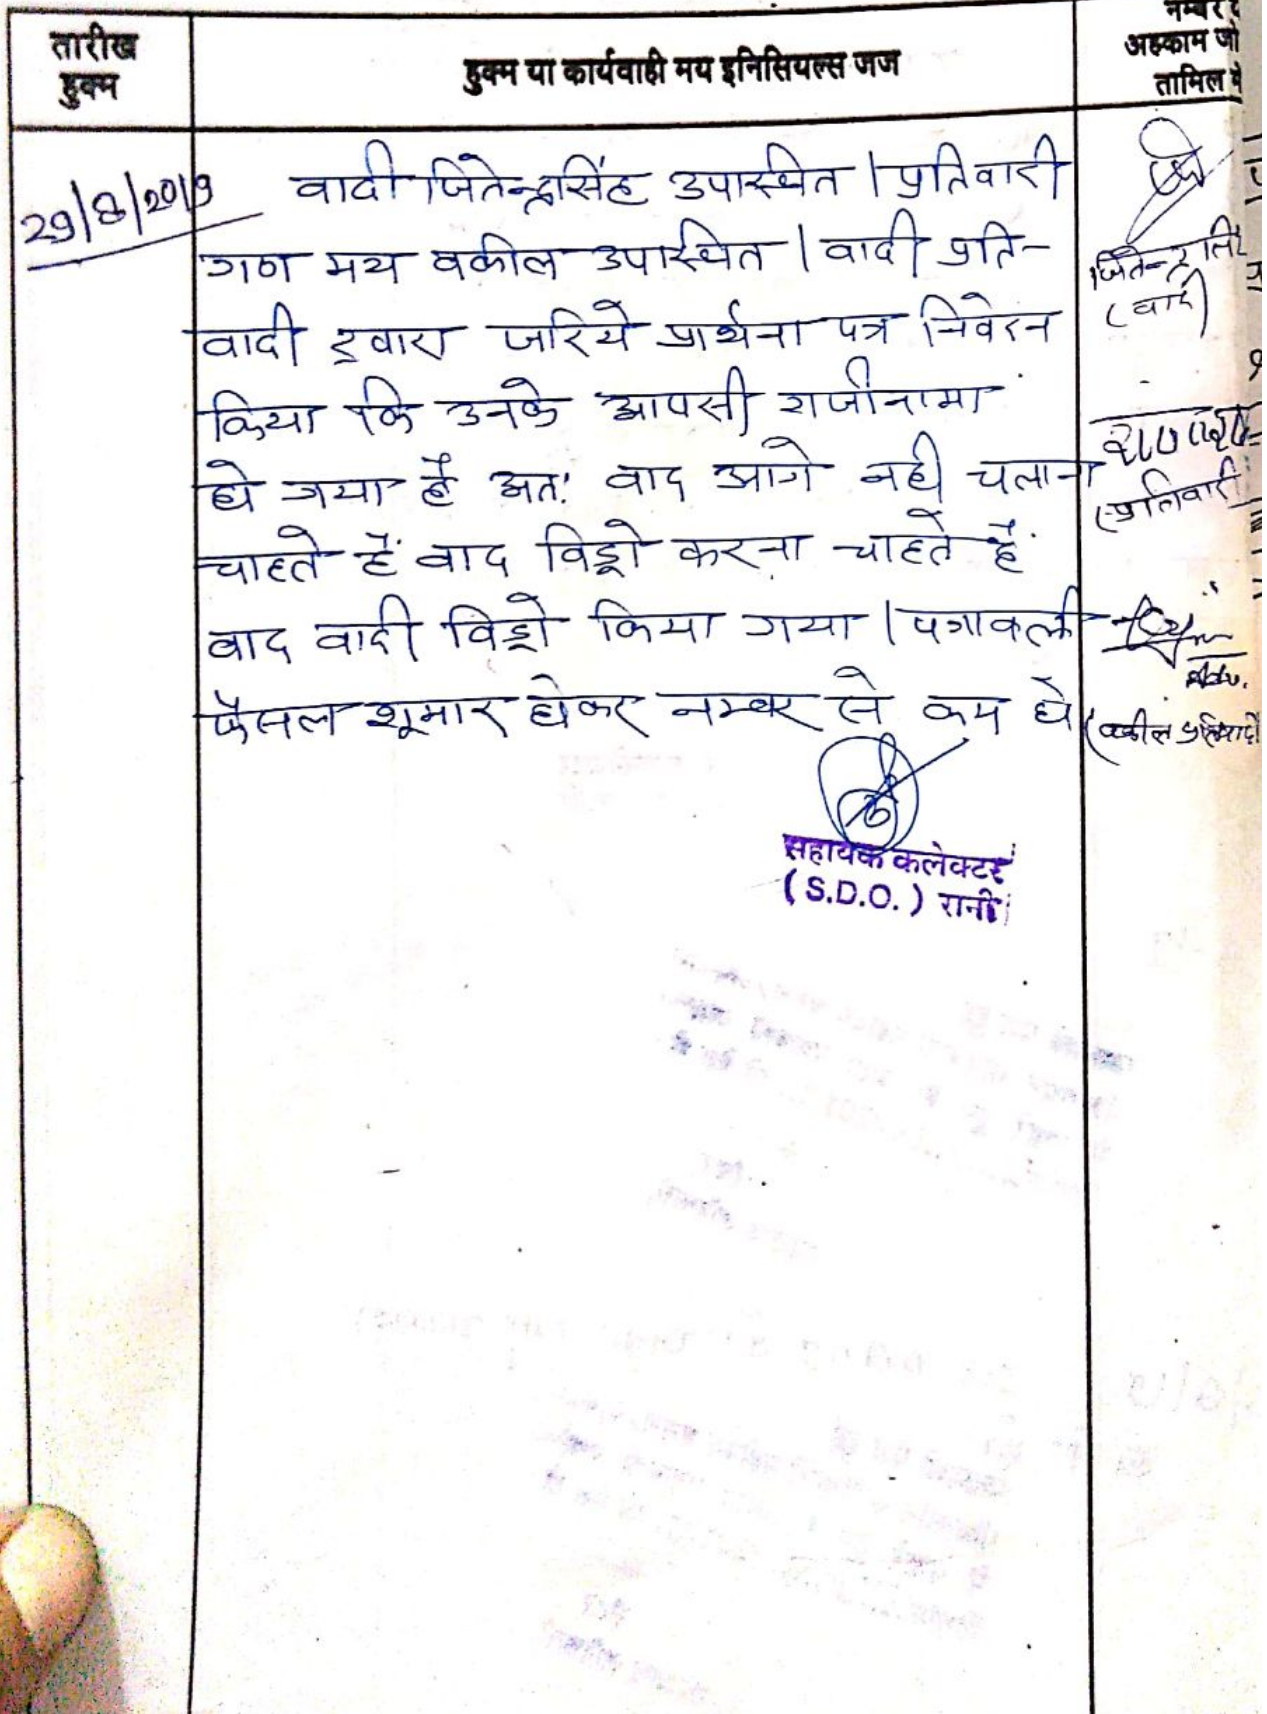 तारीख
हुक्म
हुक्म या कार्यवाही मय इनिसियल्स जज
नम्बर
अहकाम जो
तामिल
29/8/2019
वादी जितेन्द्रसिंह उपास्थित। प्रतिवादी
गण मय वकील उपास्थित। वादी प्रति-
वादी द्वारा जरिये प्रार्थना पत्र निवेदन
किया कि उनके आपसी राजीनामा
हो गया है अतः वाद आगे नही चलाना
चाहते हैं वाद विड्रो करना चाहते हैं
वाद वादी विड्रो किया गया। पत्रावली
फैसल शूमार होकर नम्बर से कम हो
सहायक कलेक्टर
(S.D.O.) रानी
जितेन्द्र सिंह
(वादी)
(प्रतिवादी
Adv.
(वकील प्रतिवादी